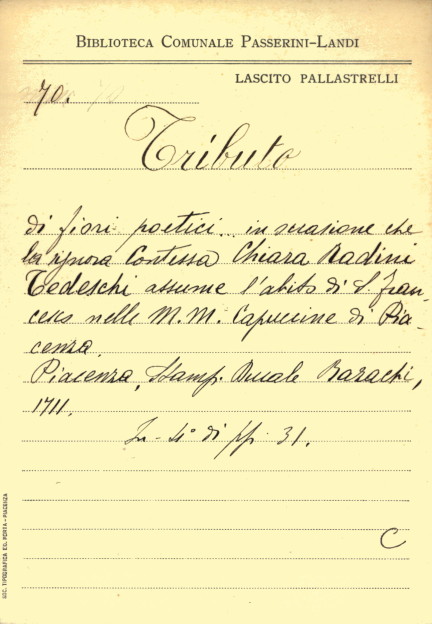 BIBLIOTECA COMUNALE PASSERINI-LANDI
LASCITO PALLASTRELLI
70.
Tributo
di fiori poetici.. in occasione che
la signora Contessa Chiara Radini
Tedeschi assume l'abito di S. Fran-
cesco nelle M.M. Capuccine di Pia-
cenza.
Piacenza, Stamp. Ducale Bazachi,
1711.
In-4° di pp. 31.
C
SOC. TIPOGRAFICA ED. PORTA - PIACENZA